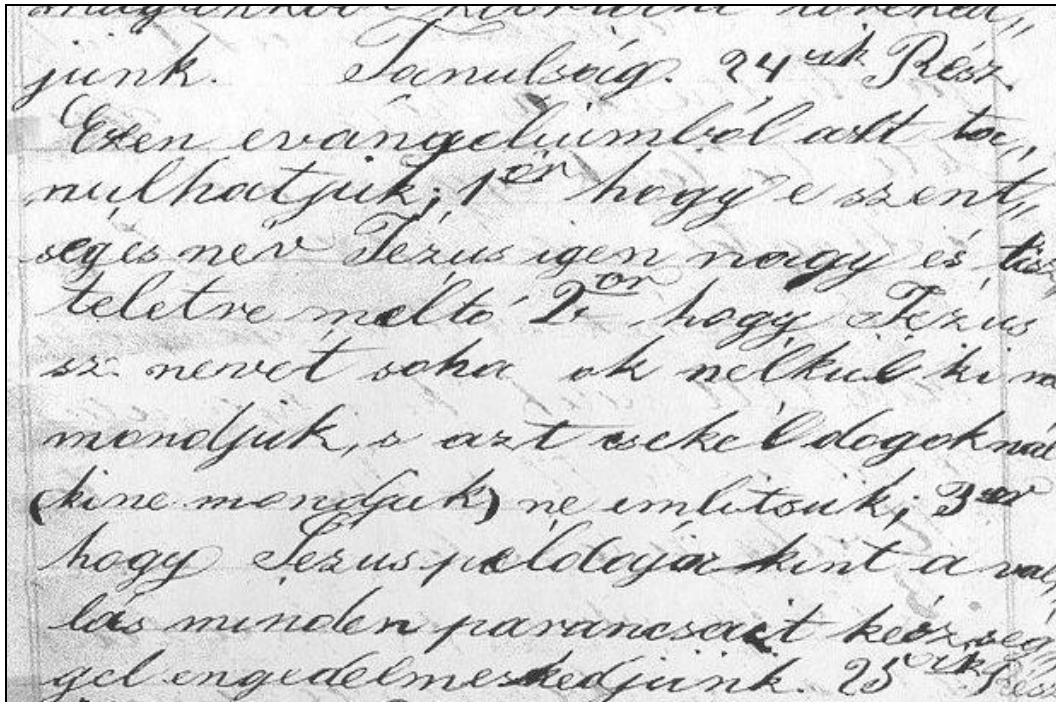 junk. Tanulság. 24ik Rész
Ezen evángeliumból azt ta„
nulhatjuk; 1ör hogy e szent„
séges név Jézus igen nagy és tisz„
teletre méltó 2or hogy Jézus
sz. nevét soha ok nélkül ki ne
mondjuk, s azt csekél dogoknál
(kine mondjuk) ne emlitsük; 3or
hogy Jezus példájakint a val„
lás minden parancsait készség„
gel engedelmeskedjünk. 25ik Rész